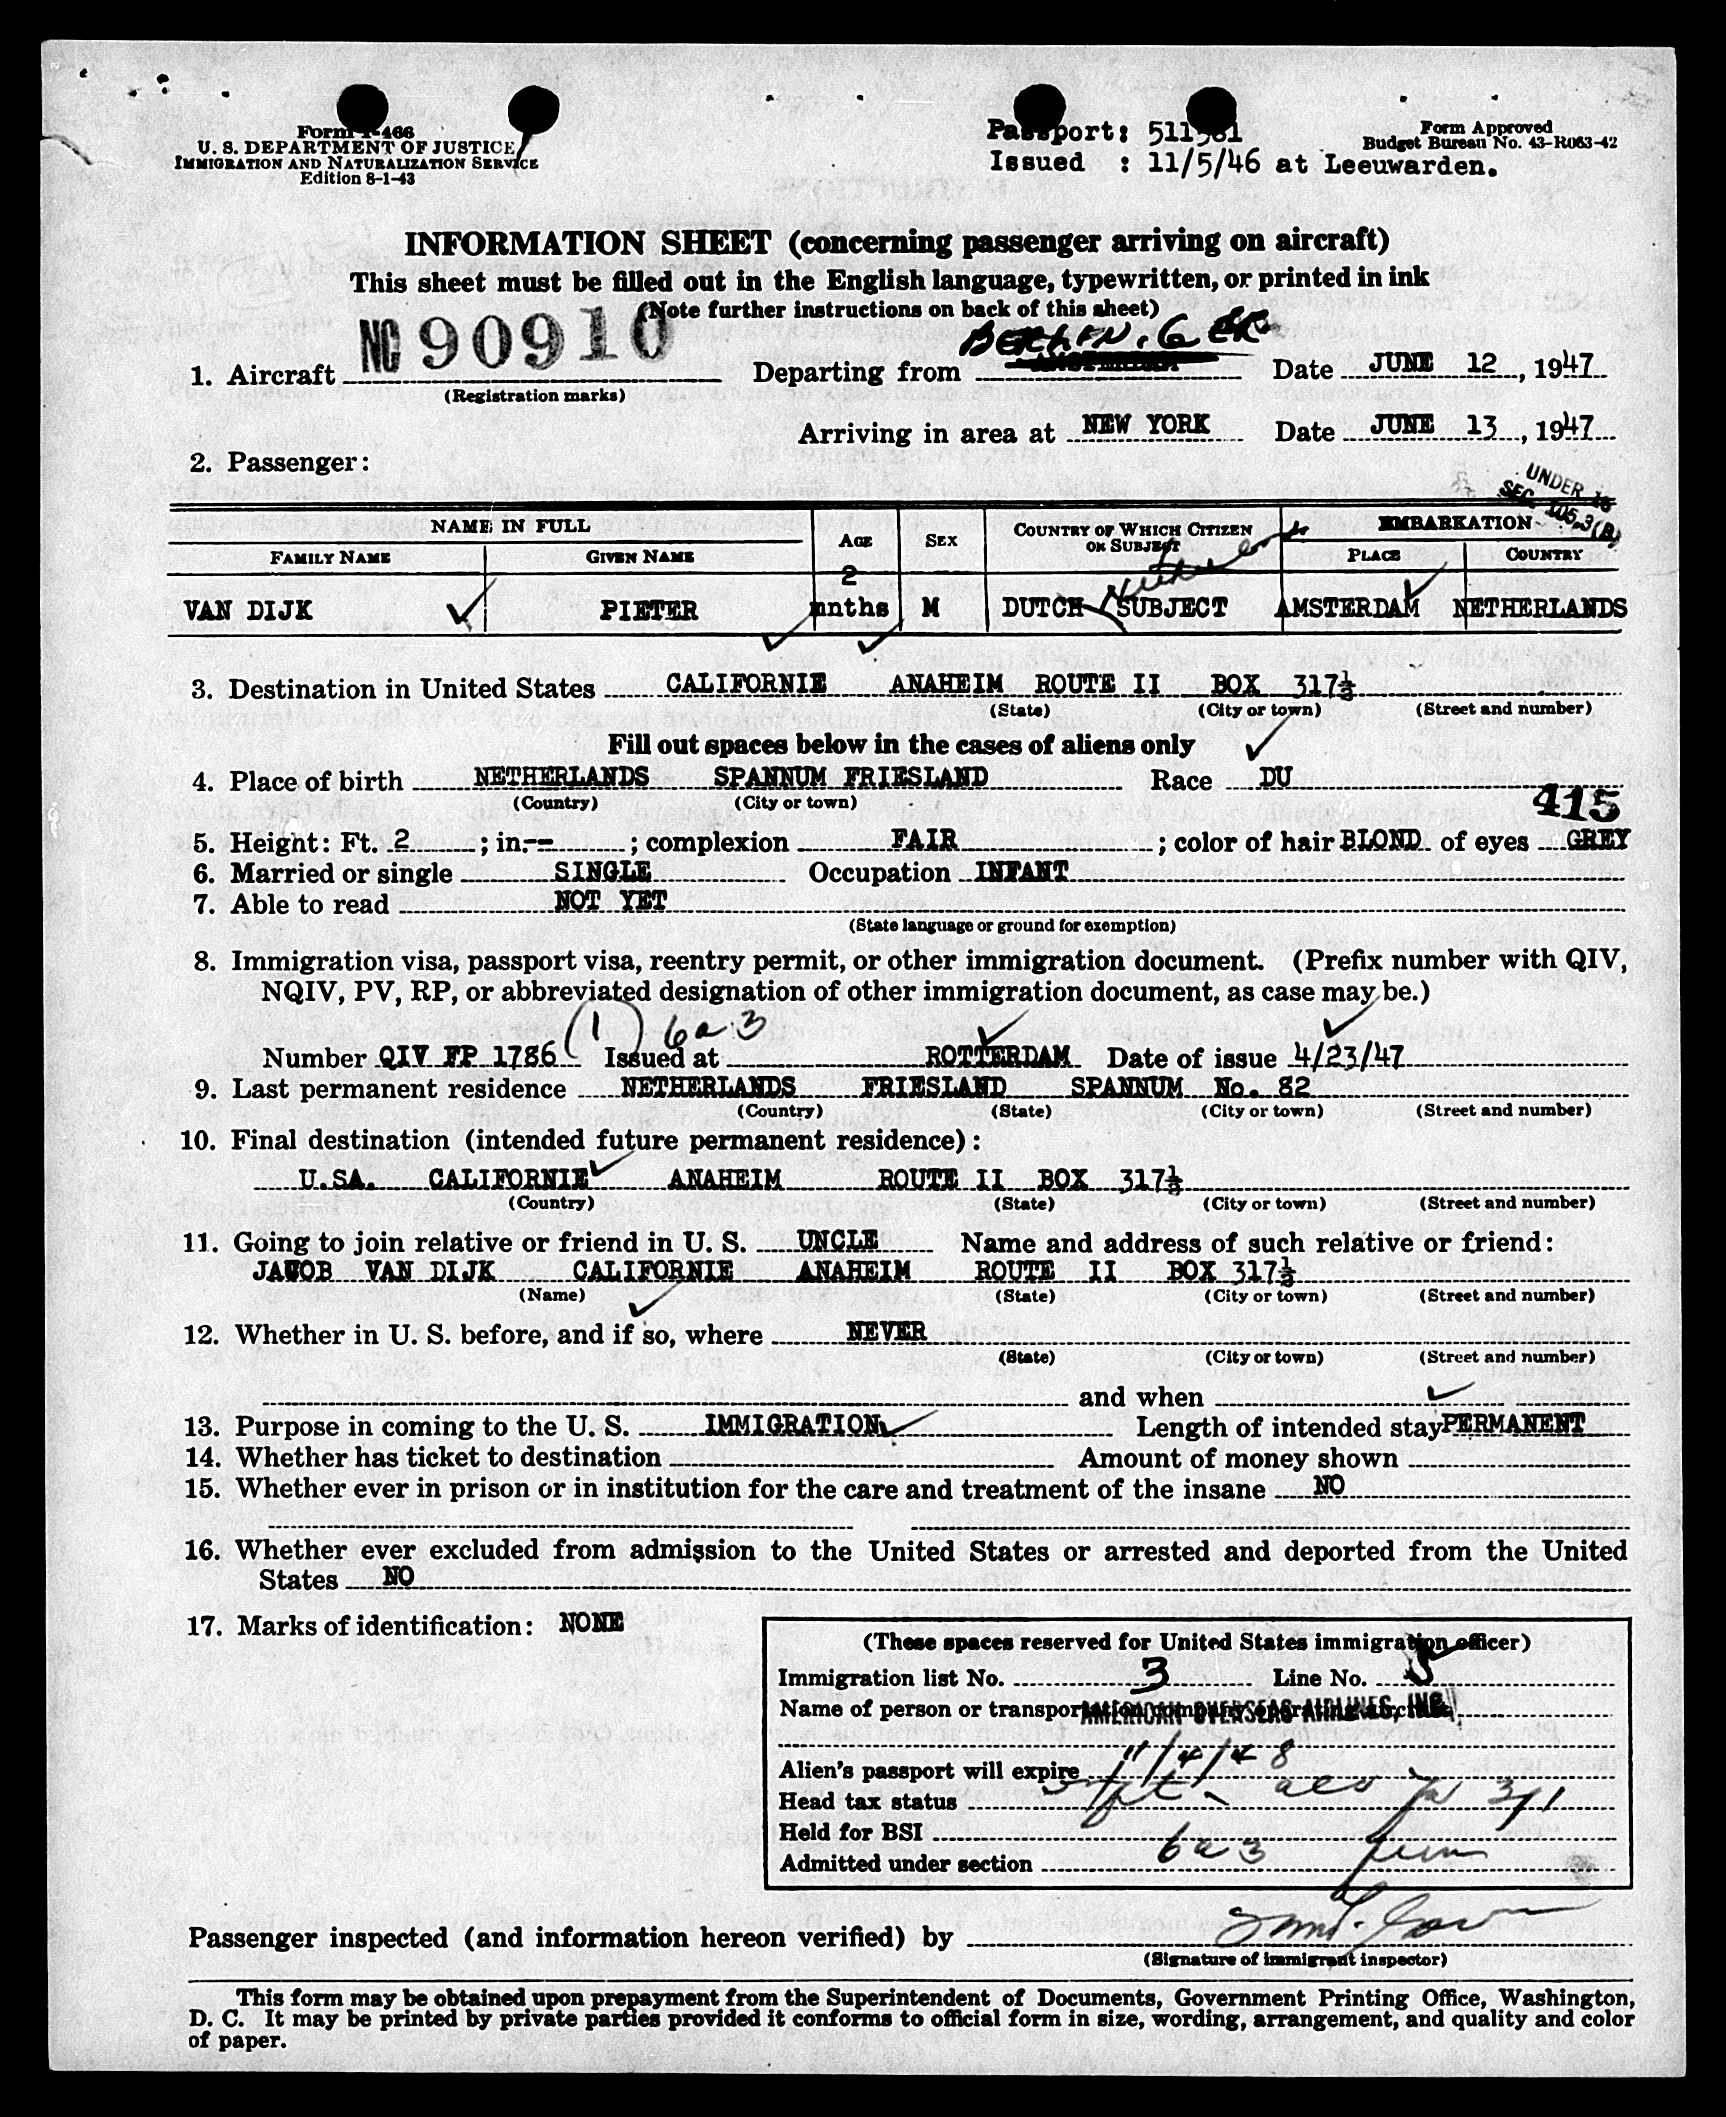 Form I-466
U. S. DEPARTMENT OF JUSTICE
IMMIGRATION AND NATURALIZATION SERVICE
Edition 8-1-43
Passport: 511581
Issued : 11/5/46 at Leeuwarden.
Form Approved
Budget Bureau No. 43-R063-42
INFORMATION SHEET (concerning passenger arriving on aircraft)
This sheet must be filled out in the English language, typewritten, or printed in ink
(Note further instructions on back of this sheet)
1. Aircraft NC 90910 Departing from BERLIN. GER. Date JUNE 12, 1947
(Registration marks)
Arriving in area at NEW YORK Date JUNE 13, 1947
2. Passenger:
UNDER 16
SEC. 105.3(B)
NAME IN FULL AGE SEX COUNTRY OF WHICH CITIZEN OR SUBJECT EMBARKATION
FAMILY NAME GIVEN NAME PLACE COUNTRY
2
VAN DIJK PIETER mnths M DUTCH SUBJECT AMSTERDAM NETHERLANDS
3. Destination in United States CALIFORNIE ANAHEIM ROUTE II BOX 317½
(State) (City or town) (Street and number)
Fill out spaces below in the cases of aliens only
4. Place of birth NETHERLANDS SPANNUM FRIESLAND Race DU
(Country) (City or town)
415
5. Height: Ft. 2 ; in.-- ; complexion FAIR ; color of hair BLOND of eyes GREY
6. Married or single SINGLE Occupation INFANT
7. Able to read NOT YET
(State language or ground for exemption)
8. Immigration visa, passport visa, reentry permit, or other immigration document. (Prefix number with QIV,
NQIV, PV, RP, or abbreviated designation of other immigration document, as case may be.)
(1) 6a3
Number QIV FP 1786 Issued at ROTTERDAM Date of issue 4/23/47
9. Last permanent residence NETHERLANDS FRIESLAND SPANNUM No. 82
(Country) (State) (City or town) (Street and number)
10. Final destination (intended future permanent residence):
U.SA. CALIFORNIE ANAHEIM ROUTE II BOX 317½
(Country) (State) (City or town) (Street and number)
11. Going to join relative or friend in U. S. UNCLE Name and address of such relative or friend:
JACOB VAN DIJK CALIFORNIE ANAHEIM ROUTE II BOX 317½
(Name) (State) (City or town) (Street and number)
12. Whether in U. S. before, and if so, where NEVER
(State) (City or town) (Street and number)
and when
13. Purpose in coming to the U. S. IMMIGRATION Length of intended stay PERMANENT
14. Whether has ticket to destination Amount of money shown
15. Whether ever in prison or in institution for the care and treatment of the insane NO
16. Whether ever excluded from admission to the United States or arrested and deported from the United
States NO
17. Marks of identification: NONE
(These spaces reserved for United States immigration officer)
Immigration list No. 3 Line No. 5
Name of person or transportation company operating aircraft AMERICAN OVERSEAS AIRLINES, INC.
Alien's passport will expire 11/4/48
Head tax status
Held for BSI
Admitted under section 6a3
Passenger inspected (and information hereon verified) by
(Signature of immigrant inspector)
This form may be obtained upon prepayment from the Superintendent of Documents, Government Printing Office, Washington,
D. C. It may be printed by private parties provided it conforms to official form in size, wording, arrangement, and quality and color
of paper.